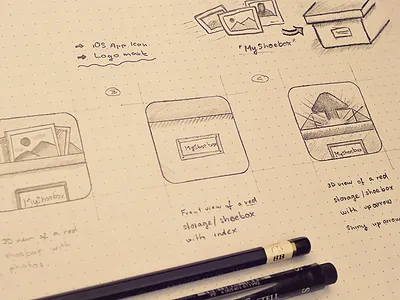 → iOS App Icon
→ Logo mark
"MyShoebox"
B
C
MyShoebox
MyShoebox
MyShoebox
3D view of a red
with
photos
Front view of a red
storage/shoebox
with index
3D view of a red
storage/shoebox
with up arrow
Shiny up arrow